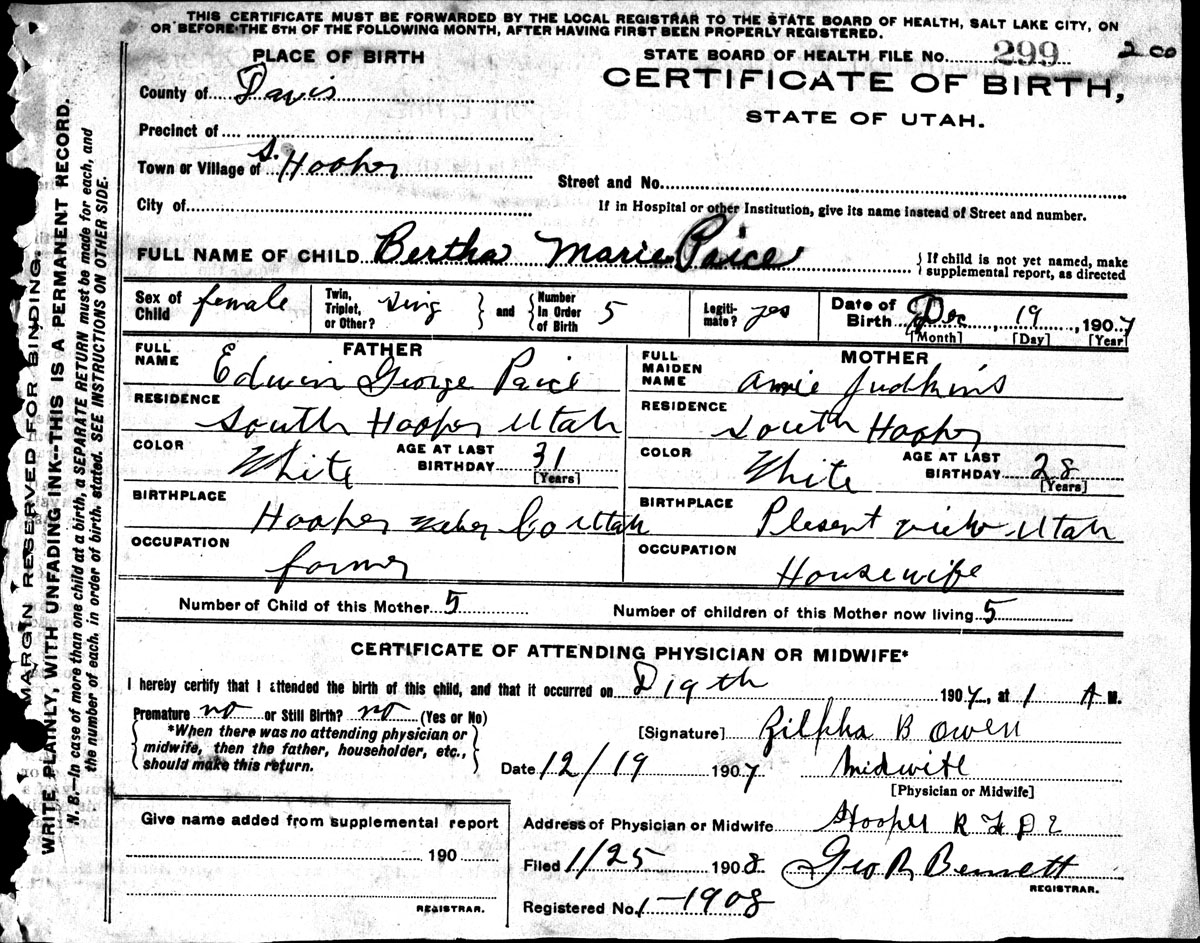 THIS CERTIFICATE MUST BE FORWARDED BY THE LOCAL REGISTRAR TO THE STATE BOARD OF HEALTH, SALT LAKE CITY, ON
OR BEFORE THE 5TH OF THE FOLLOWING MONTH, AFTER HAVING FIRST BEEN PROPERLY REGISTERED.
PLACE OF BIRTH
STATE BOARD OF HEALTH FILE No. 299 2 co
CERTIFICATE OF BIRTH,
STATE OF UTAH.
County of Davis
Precinct of
Town or Village of S. Hooper
Street and No.
City of
If in Hospital or other Institution, give its name instead of Street and number.
FULL NAME OF CHILD Bertha Marie Paice
{ If child is not yet named, make
supplemental report, as directed
Sex of Child female
Twin, Triplet, or Other? sing } and { Number In Order of Birth 5
Legitimate? yes
Date of Birth Dec 19, 1907
[Month] [Day] [Year]
FATHER
FULL NAME Edwin George Paice
RESIDENCE South Hooper Utah
COLOR White AGE AT LAST BIRTHDAY 31
[Years]
BIRTHPLACE Hooper Weber Co Utah
OCCUPATION farmer
MOTHER
FULL MAIDEN NAME Annie Judkins
RESIDENCE South Hooper
COLOR White AGE AT LAST BIRTHDAY 28
[Years]
BIRTHPLACE Plesent view Utah
OCCUPATION Housewife
Number of Child of this Mother 5 Number of children of this Mother now living 5
CERTIFICATE OF ATTENDING PHYSICIAN OR MIDWIFE*
I hereby certify that I attended the birth of this child, and that it occurred on D 19th 1907, at 1 A M.
Premature no or Still Birth? no (Yes or No)
{ *When there was no attending physician or
midwife, then the father, householder, etc.,
should make this return. }
[Signature] Zilpha B Owen
Date 12/19 1907 Midwife
[Physician or Midwife]
Give name added from supplemental report
190
REGISTRAR.
Address of Physician or Midwife Hooper R F D 2
Filed 1/25 1908 Geo R Bennett
REGISTRAR.
Registered No. 1-1908
MARGIN RESERVED FOR BINDING.
WRITE PLAINLY, WITH UNFADING INK—THIS IS A PERMANENT RECORD.
N. B.—In case of more than one child at a birth, a SEPARATE RETURN must be made for each, and
the number of each, in order of birth, stated. SEE INSTRUCTIONS ON OTHER SIDE.